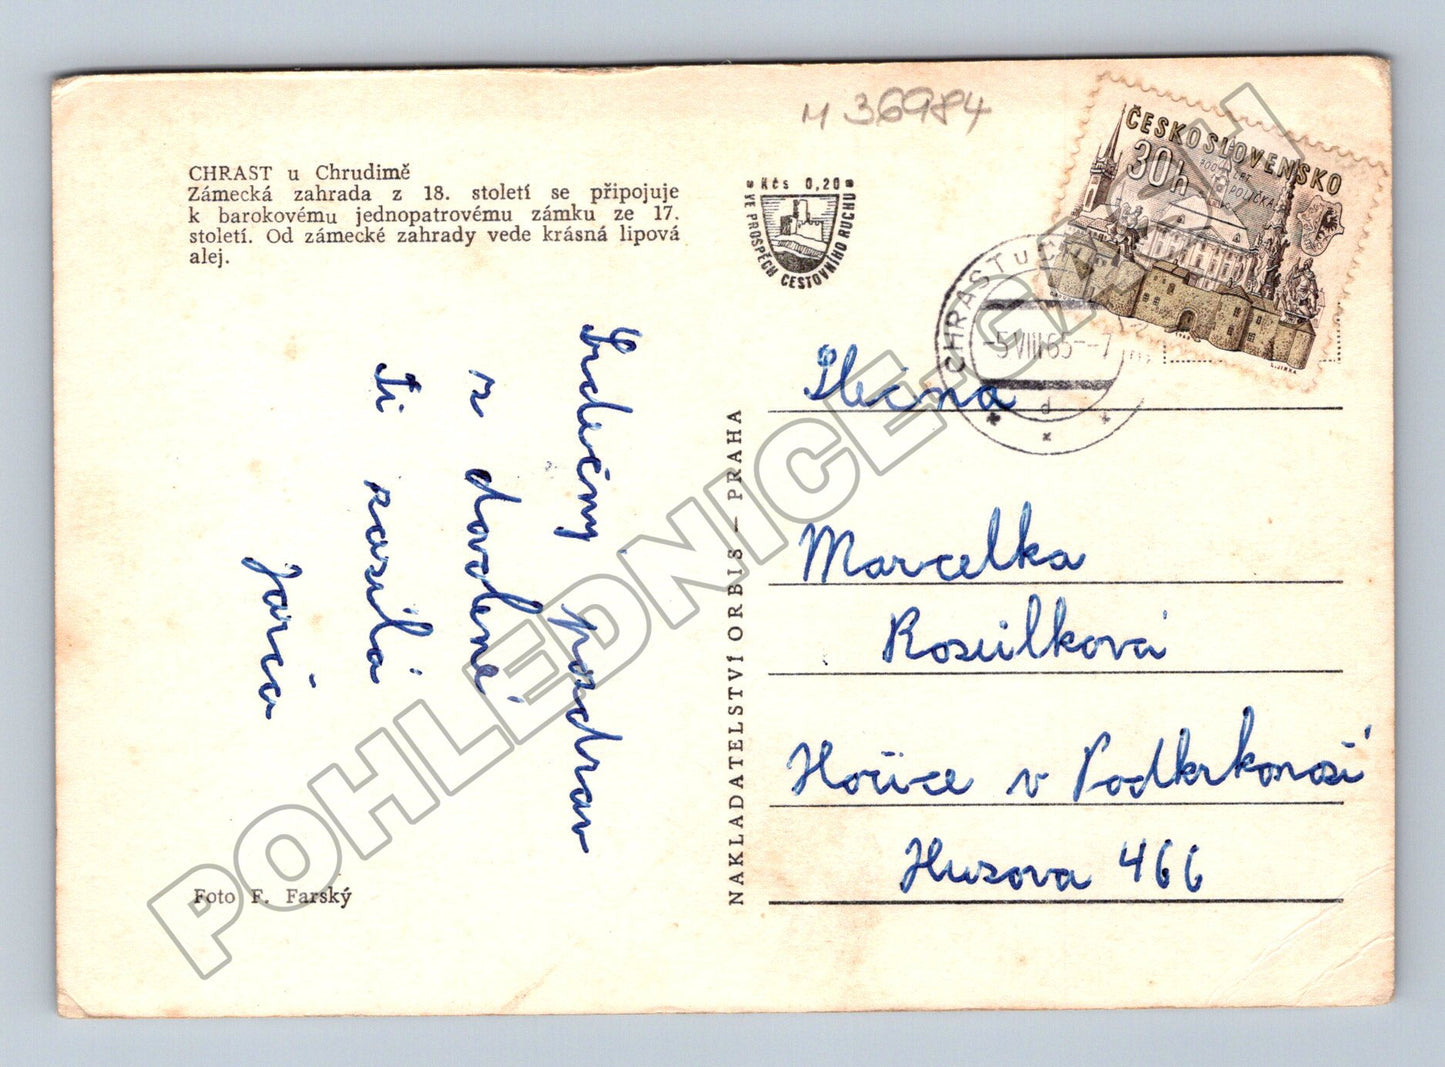 M 36984
CHRAST u Chrudimě
Zámecká zahrada z 18. století se připojuje
k barokovému jednopatrovému zámku ze 17.
století. Od zámecké zahrady vede krásná lipová
alej.
Kčs 0,20
VE PROSPĚCH CESTOVNÍHO RUCHU
ČESKOSLOVENSKO
30h
700 LET
POLIČKA
L.JIRKA
CHRAST u CH
-5.VIII.65--7
d
Srdečný pozdrav
z dovolené
Ti zasílá
Jarča
NAKLADATELSTVÍ ORBIS — PRAHA
Slečna
Marcelka
Rosůlková
Hořice v Podkrkonoší
Husova 466
Foto F. Farský
POHLEDNICE.CZ